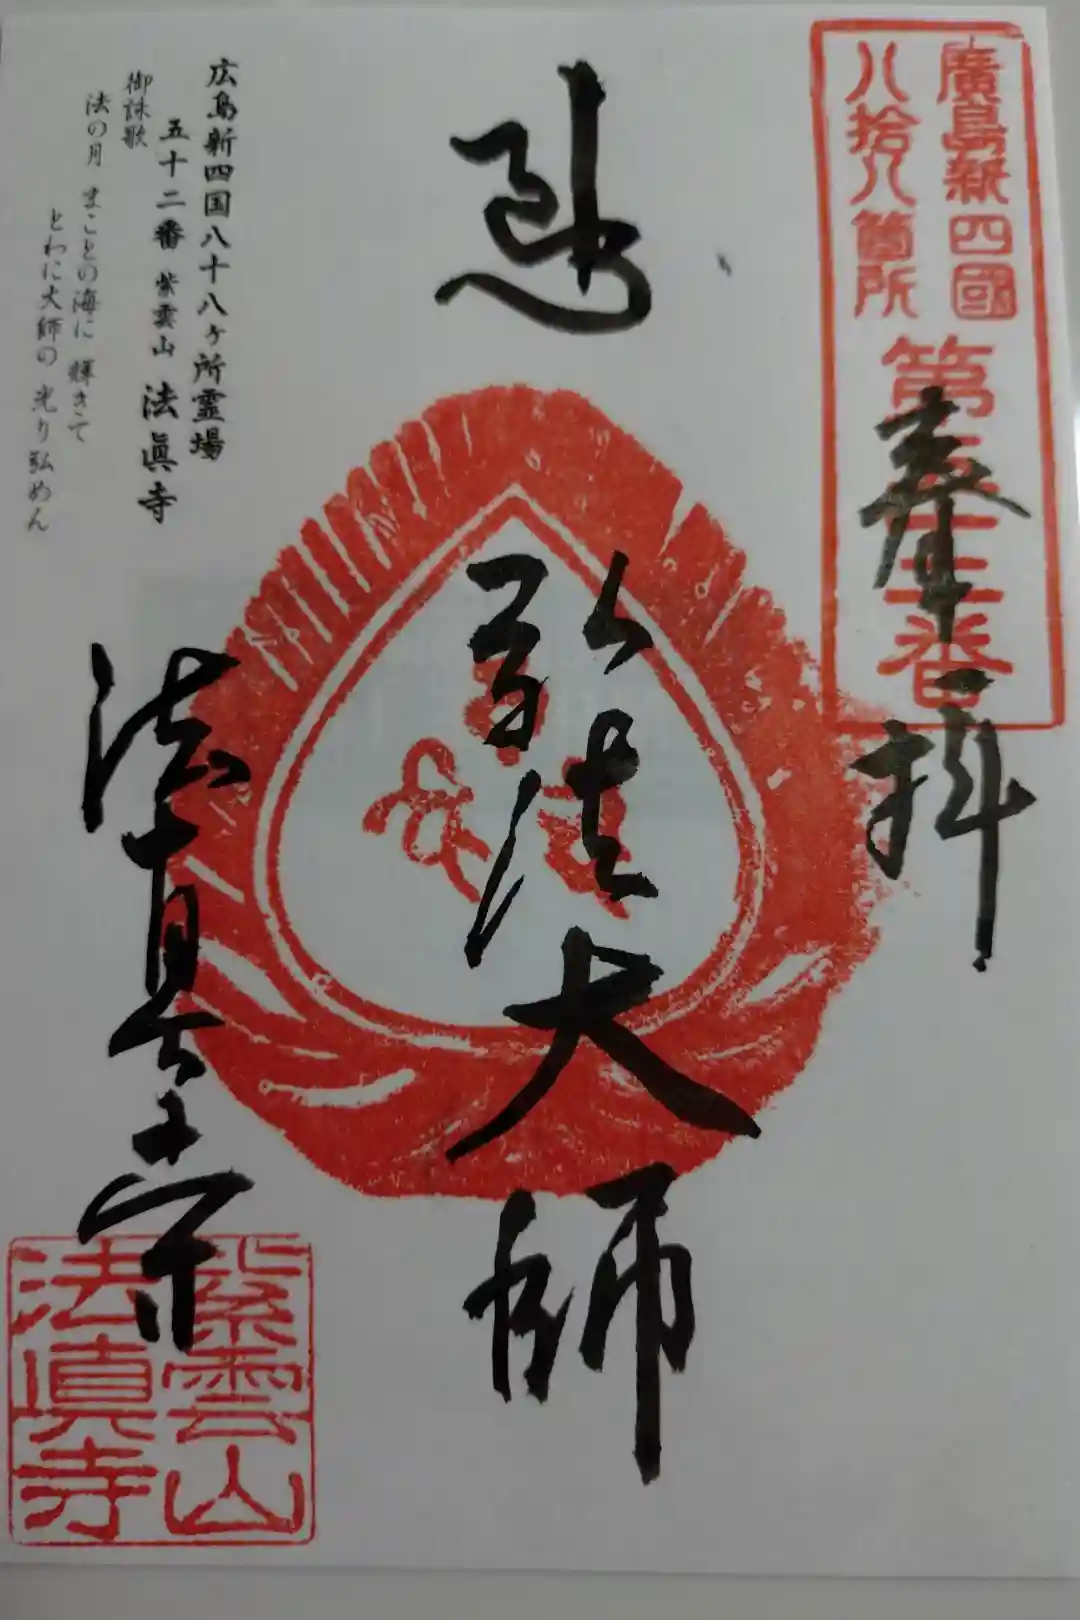 廣島新四國
八拾八箇所
第五十二番
奉拝
弘法大師
法真寺
広島新四国八十八ヶ所霊場
五十二番 紫雲山 法眞寺
御詠歌
法の月 まことの海に 輝きて
とわに大師の 光り弘めん
紫雲山
法眞寺